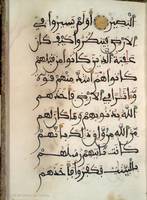 البصير أولم يسيروا في
الأرض فينظروا كيف كان
عاقبة الذين كانوا من قبلهم
كانوا هم أشد منهم قوة
وءاثارا في الأرض فأخذهم
الله بذنوبهم وما كان لهم
من الله من واق ذلك بأنهم
كانت تأتيهم رسلهم
بالبينات فكفروا فأخذهم